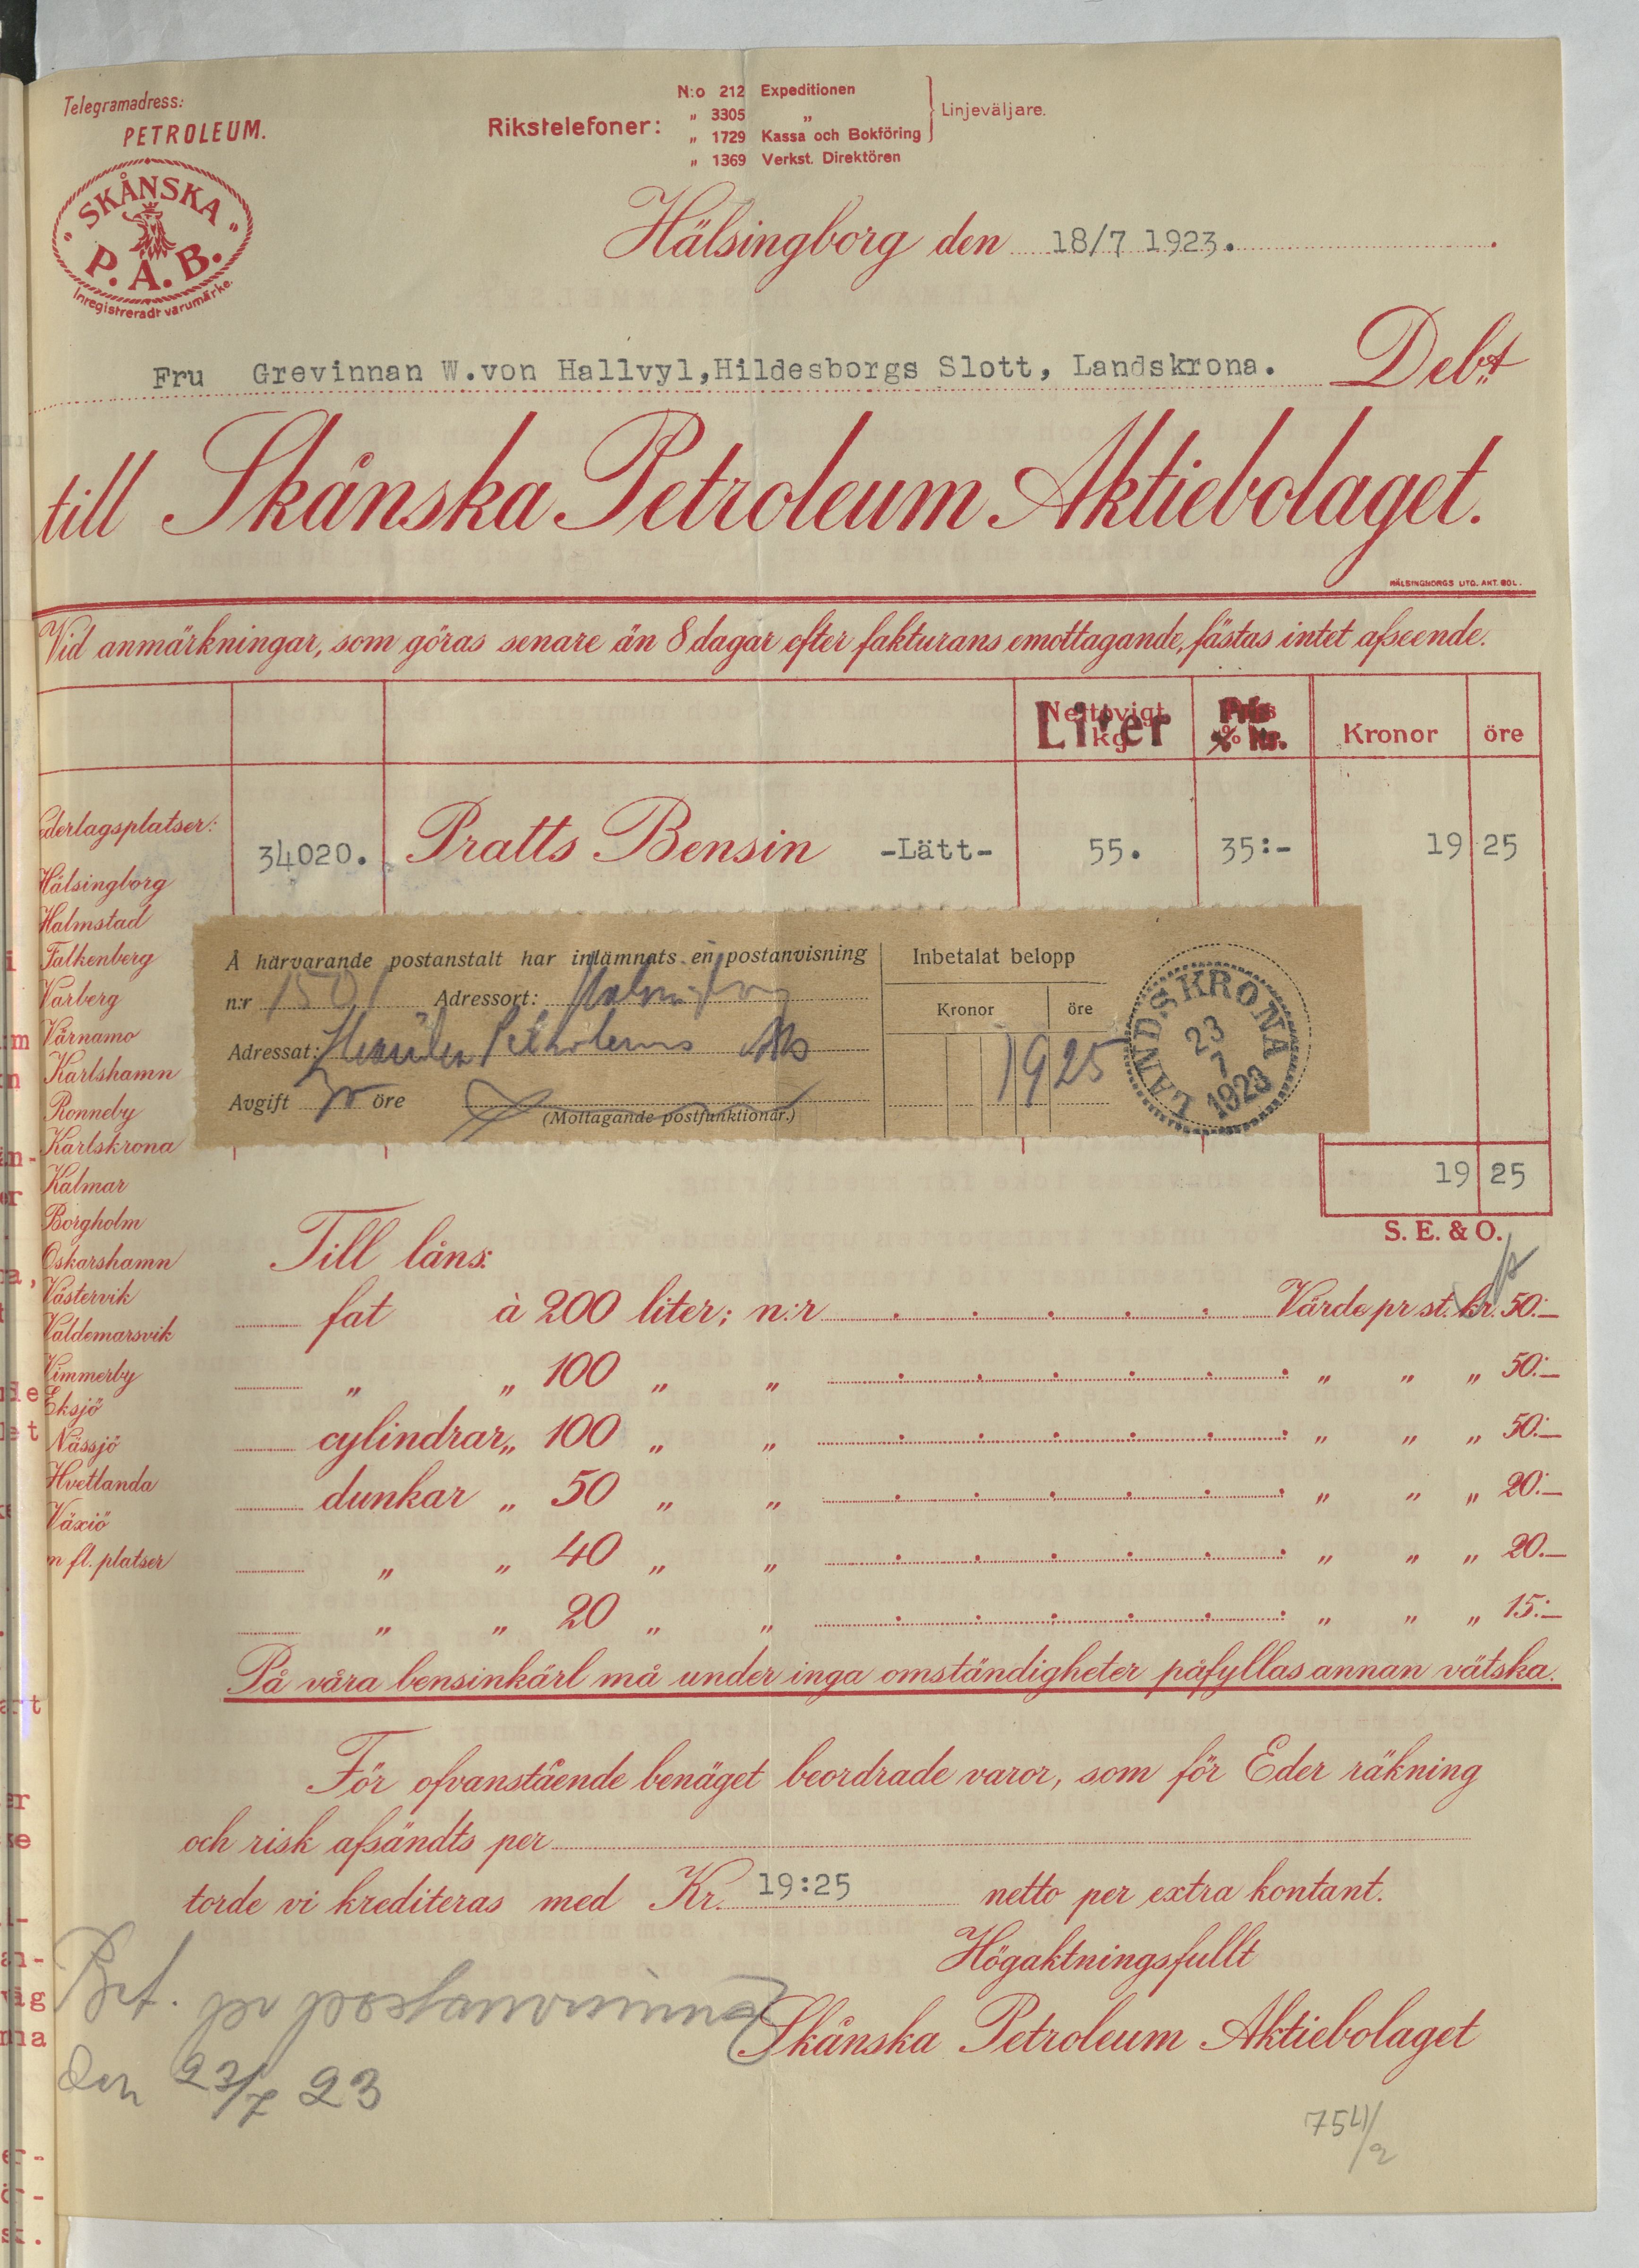 Telegramadress:
PETROLEUM.
SKÅNSKA
P.A.B.
Inregistreradt varumärke.
Rikstelefoner:
N:o 212 Expeditionen
„ 3305 „
„ 1729 Kassa och Bokföring
„ 1369 Verkst. Direktören
Linjeväljare.
Hälsingborg den 18/7 1923.
Fru Grevinnan W.von Hallvyl,Hildesborgs Slott, Landskrona. Deb:t
till Skånska Petroleum Aktiebolaget.
HÄLSINGBORGS LITO. AKT. BOL.
Vid anmärkningar, som göras senare än 8 dagar efter fakturans emottagande, fästas intet afseende.
Nettovigt kg. Liter Pris % Kronor öre
34020. Pratts Bensin -Lätt- 55. 35:- 19 25
derlagsplatser:
Hälsingborg
Halmstad
Falkenberg
Varberg
Värnamo
Karlshamn
Ronneby
Karlskrona
Kalmar
Borgholm
Oskarshamn
Västervik
Valdemarsvik
Vimmerby
Eksjö
Nässjö
Hvetlanda
Växiö
m fl. platser
Å härvarande postanstalt har inlämnats en postanvisning
n:r 1501 Adressort:
Adressat: Petroleums
Avgift öre
(Mottagande postfunktionär.)
Inbetalat belopp
Kronor öre
19 25
LANDSKRONA
23
7
1923
19 25
S. E. & O.
Till låns:
fat à 200 liter; n:r Värde pr st. kr. 50:—
„ „ 100 „ „ „ „ „ 50:—
cylindrar „ 100 „ „ „ „ „ 50:—
dunkar „ 50 „ „ „ „ „ 20:—
„ „ 40 „ „ „ „ „ 20.—
„ „ 20 „ „ „ „ „ 15:—
På våra bensinkärl må under inga omständigheter påfyllas annan vätska.
För ofvanstående benäget beordrade varor, som för Eder räkning
och risk afsändts per
torde vi krediteras med Kr. 19:25 netto per extra kontant.
Högaktningsfullt
Skånska Petroleum Aktiebolaget
Bet. pr postanvisning
den 23/7 23